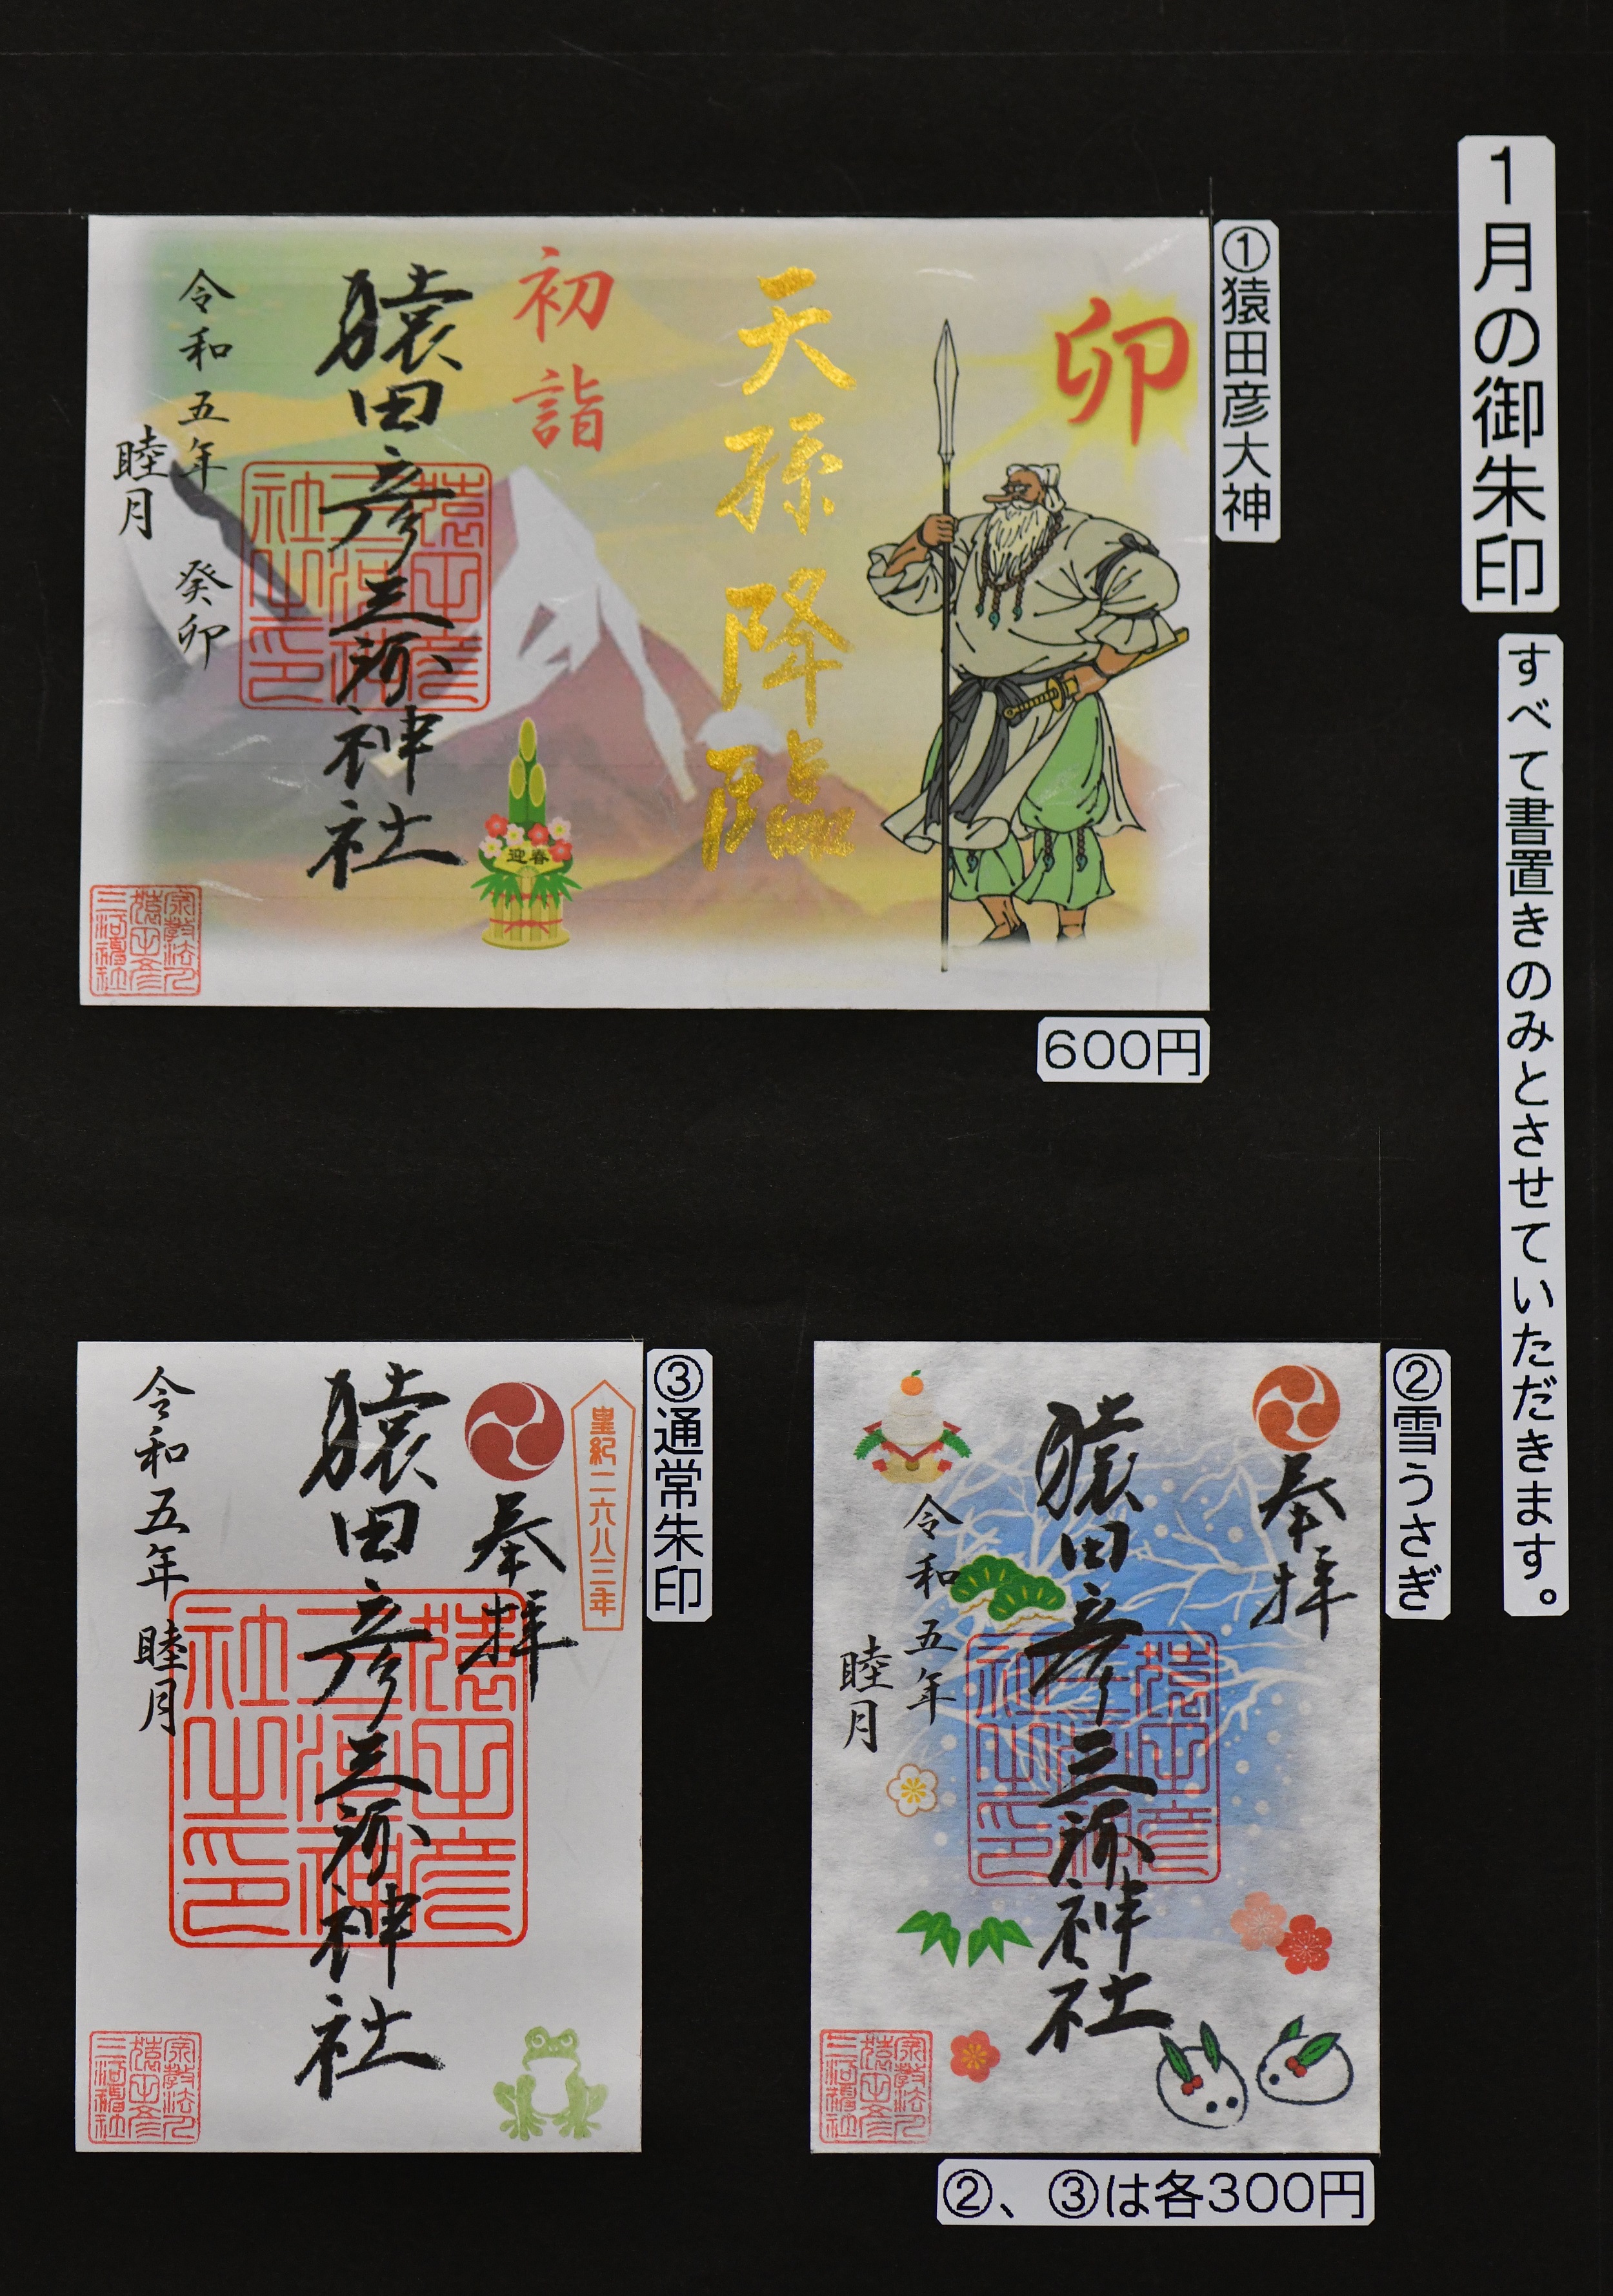 1月の御朱印
すべて書置きのみとさせていただきます。
①猿田彦大神
卯
天孫降臨
初詣
迎春
猿田彦三河神社
令和五年 癸卯
睦月
600円
②雪うさぎ
奉拝
猿田彦三河神社
令和五年
睦月
③通常朱印
皇紀二六八三年
奉拝
猿田彦三河神社
令和五年 睦月
②、③は各300円